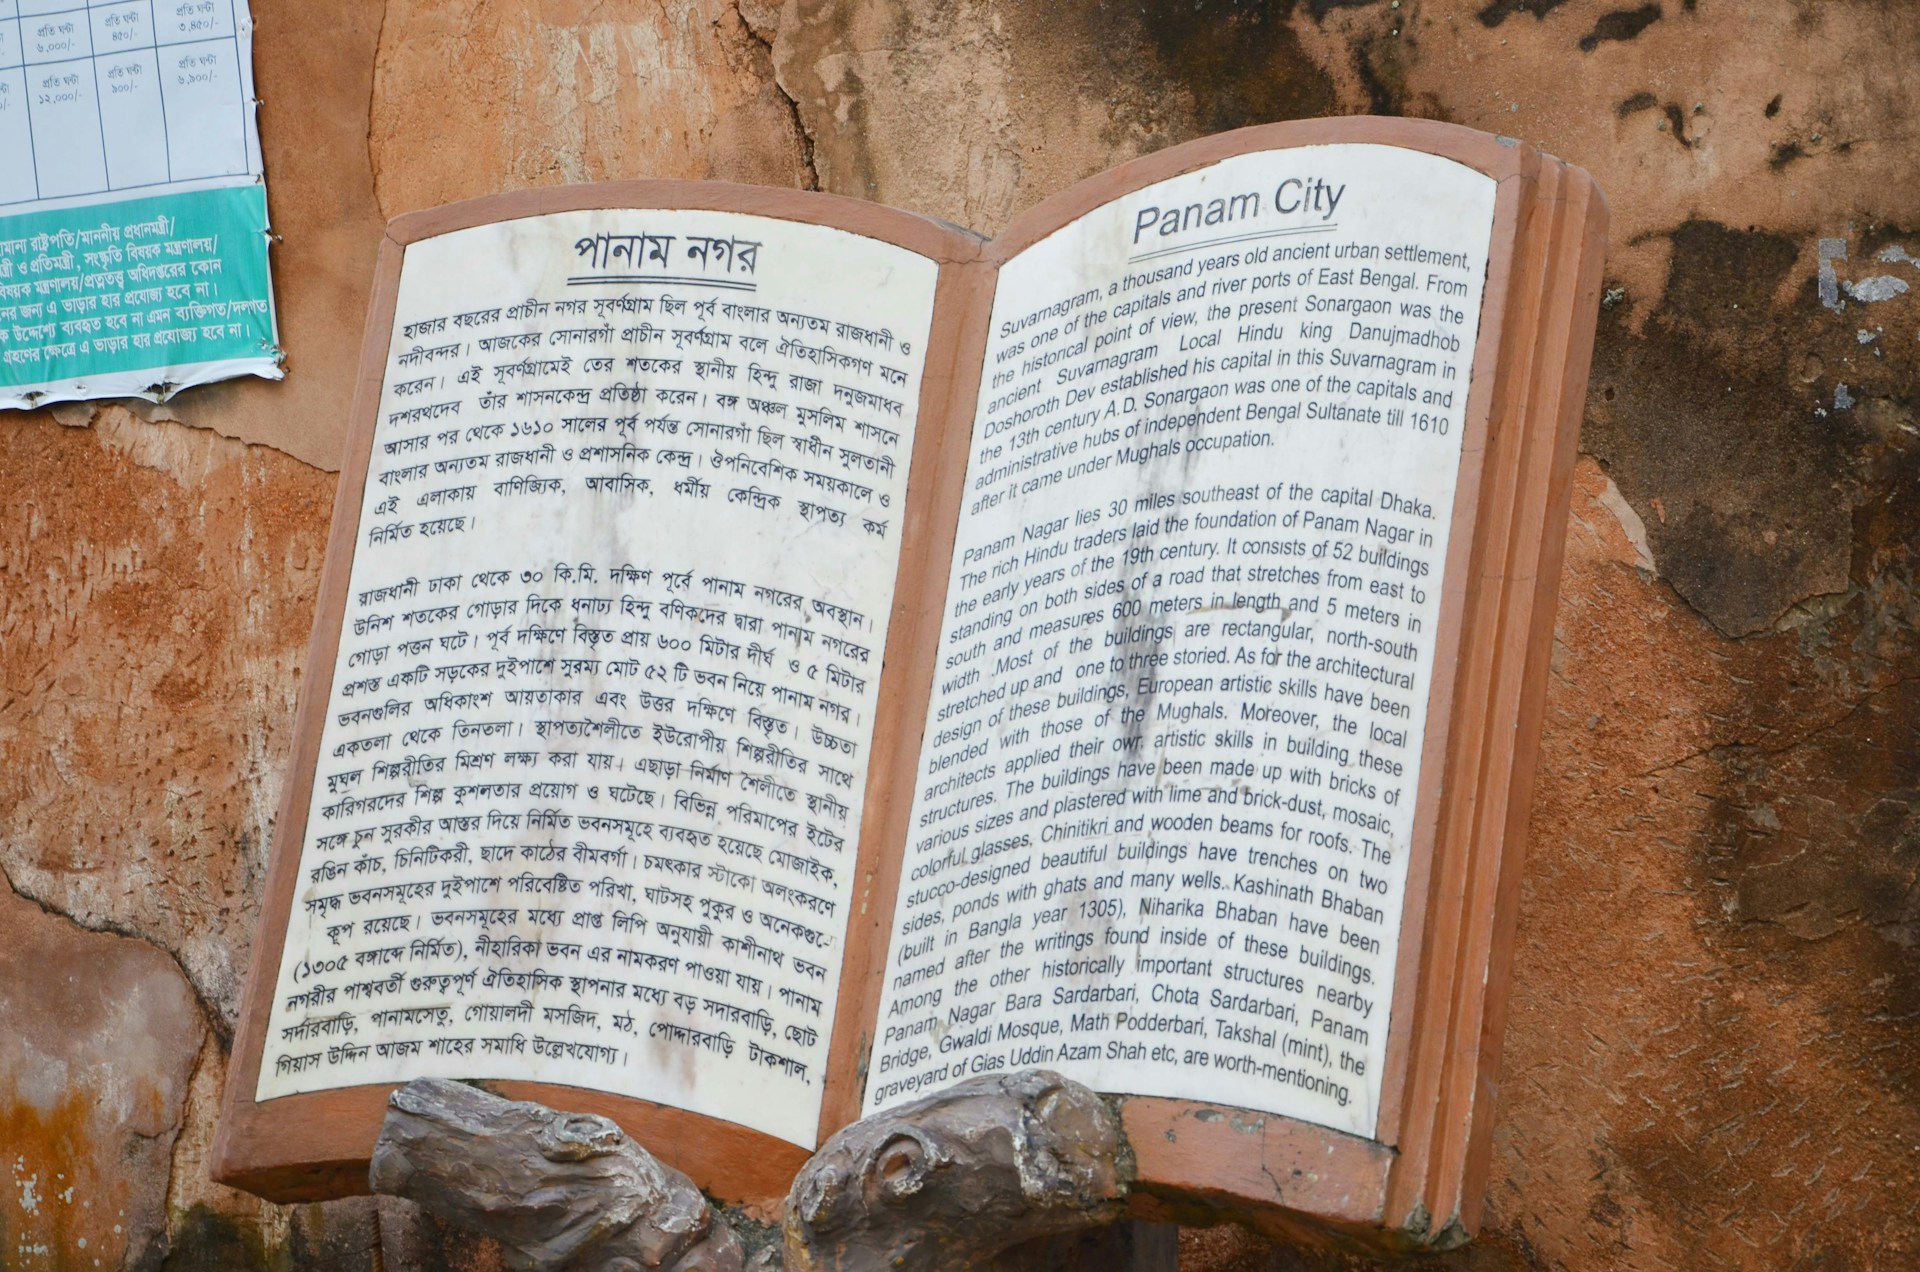 প্রতি ঘন্টা প্রতি ঘন্টা প্রতি ঘন্টা
৬,০০০/- ৪৫০/- ৩,৪৫০/-
প্রতি ঘন্টা প্রতি ঘন্টা প্রতি ঘন্টা
১২,০০০/- ৯০০/- ৬,৯০০/-
রাষ্ট্রপতি/মাননীয় প্রধানমন্ত্রী/
ও প্রতিমন্ত্রী, সংস্কৃতি বিষয়ক মন্ত্রণালয়/
বিষয়ক মন্ত্রণালয়/প্রত্নতত্ত্ব অধিদপ্তরের কোন
জন্য এ ভাড়ার হার প্রযোজ্য হবে না।
উদ্দেশ্যে ব্যবহৃত হবে না এমন ব্যক্তিগত/দলগত
গ্রহণের ক্ষেত্রে এ ভাড়ার হার প্রযোজ্য হবে না।
পানাম নগর
হাজার বছরের প্রাচীন নগর সূবর্ণগ্রাম ছিল পূর্ব বাংলার অন্যতম রাজধানী ও
নদীবন্দর। আজকের সোনারগাঁ প্রাচীন সূবর্ণগ্রাম বলে ঐতিহাসিকগণ মনে
করেন। এই সূবর্ণগ্রামেই তের শতকের স্থানীয় হিন্দু রাজা দনুজমাধব
দশরথদেব তাঁর শাসনকেন্দ্র প্রতিষ্ঠা করেন। বঙ্গ অঞ্চল মুসলিম শাসনে
আসার পর থেকে ১৬১০ সালের পূর্ব পর্যন্ত সোনারগাঁ ছিল স্বাধীন সুলতানী
বাংলার অন্যতম রাজধানী ও প্রশাসনিক কেন্দ্র। ঔপনিবেশিক সময়কালে ও
এই এলাকায় বাণিজ্যিক, আবাসিক, ধর্মীয় কেন্দ্রিক স্থাপত্য কর্ম
নির্মিত হয়েছে।
রাজধানী ঢাকা থেকে ৩০ কি.মি. দক্ষিণ পূর্বে পানাম নগরের অবস্থান।
উনিশ শতকের গোড়ার দিকে ধনাঢ্য হিন্দু বণিকদের দ্বারা পানাম নগরের
গোড়া পত্তন ঘটে। পূর্ব দক্ষিণে বিস্তৃত প্রায় ৬০০ মিটার দীর্ঘ ও ৫ মিটার
প্রশস্ত একটি সড়কের দুইপাশে সুরম্য মোট ৫২ টি ভবন নিয়ে পানাম নগর।
ভবনগুলির অধিকাংশ আয়তাকার এবং উত্তর দক্ষিণে বিস্তৃত। উচ্চতা
একতলা থেকে তিনতলা। স্থাপত্যশৈলীতে ইউরোপীয় শিল্পরীতির সাথে
মুঘল শিল্পরীতির মিশ্রণ লক্ষ্য করা যায়। এছাড়া নির্মাণ শৈলীতে স্থানীয়
কারিগরদের শিল্প কুশলতার প্রয়োগ ও ঘটেছে। বিভিন্ন পরিমাপের ইটের
সঙ্গে চুন সুরকীর আস্তর দিয়ে নির্মিত ভবনসমূহে ব্যবহৃত হয়েছে মোজাইক,
রঙিন কাঁচ, চিনিটিকরী, ছাদে কাঠের বীমবর্গা। চমৎকার স্টাকো অলংকরণে
সমৃদ্ধ ভবনসমূহের দুইপাশে পরিবেষ্টিত পরিখা, ঘাটসহ পুকুর ও অনেকগু-
কূপ রয়েছে। ভবনসমূহের মধ্যে প্রাপ্ত লিপি অনুযায়ী কাশীনাথ ভবন
(১৩০৫ বঙ্গাব্দে নির্মিত), নীহারিকা ভবন এর নামকরণ পাওয়া যায়। পানাম
নগরীর পাশ্ববর্তী গুরুত্বপূর্ণ ঐতিহাসিক স্থাপনার মধ্যে বড় সদারবাড়ি, ছোট
সর্দারবাড়ি, পানামসেতু, গোয়ালদী মসজিদ, মঠ, পোদ্দারবাড়ি টাকশাল,
গিয়াস উদ্দিন আজম শাহের সমাধি উল্লেখযোগ্য।
Panam City
Suvarnagram, a thousand years old ancient urban settlement,
was one of the capitals and river ports of East Bengal. From
the historical point of view, the present Sonargaon was the
ancient Suvarnagram Local Hindu king Danujmadhob
Doshoroth Dev established his capital in this Suvarnagram in
the 13th century A.D. Sonargaon was one of the capitals and
administrative hubs of independent Bengal Sultanate till 1610
after it came under Mughals occupation.
Panam Nagar lies 30 miles southeast of the capital Dhaka.
The rich Hindu traders laid the foundation of Panam Nagar in
the early years of the 19th century. It consists of 52 buildings
standing on both sides of a road that stretches from east to
south and measures 600 meters in length and 5 meters in
width .Most of the buildings are rectangular, north-south
stretched up and one to three storied. As for the architectural
design of these buildings, European artistic skills have been
blended with those of the Mughals. Moreover, the local
architects applied their own artistic skills in building these
structures. The buildings have been made up with bricks of
various sizes and plastered with lime and brick-dust, mosaic,
colorful glasses, Chinitikri and wooden beams for roofs. The
stucco-designed beautiful buildings have trenches on two
sides, ponds with ghats and many wells. Kashinath Bhaban
(built in Bangla year 1305), Niharika Bhaban have been
named after the writings found inside of these buildings.
Among the other historically important structures nearby
Panam Nagar Bara Sardarbari, Chota Sardarbari, Panam
Bridge, Gwaldi Mosque, Math Podderbari, Takshal (mint), the
graveyard of Gias Uddin Azam Shah etc, are worth-mentioning.